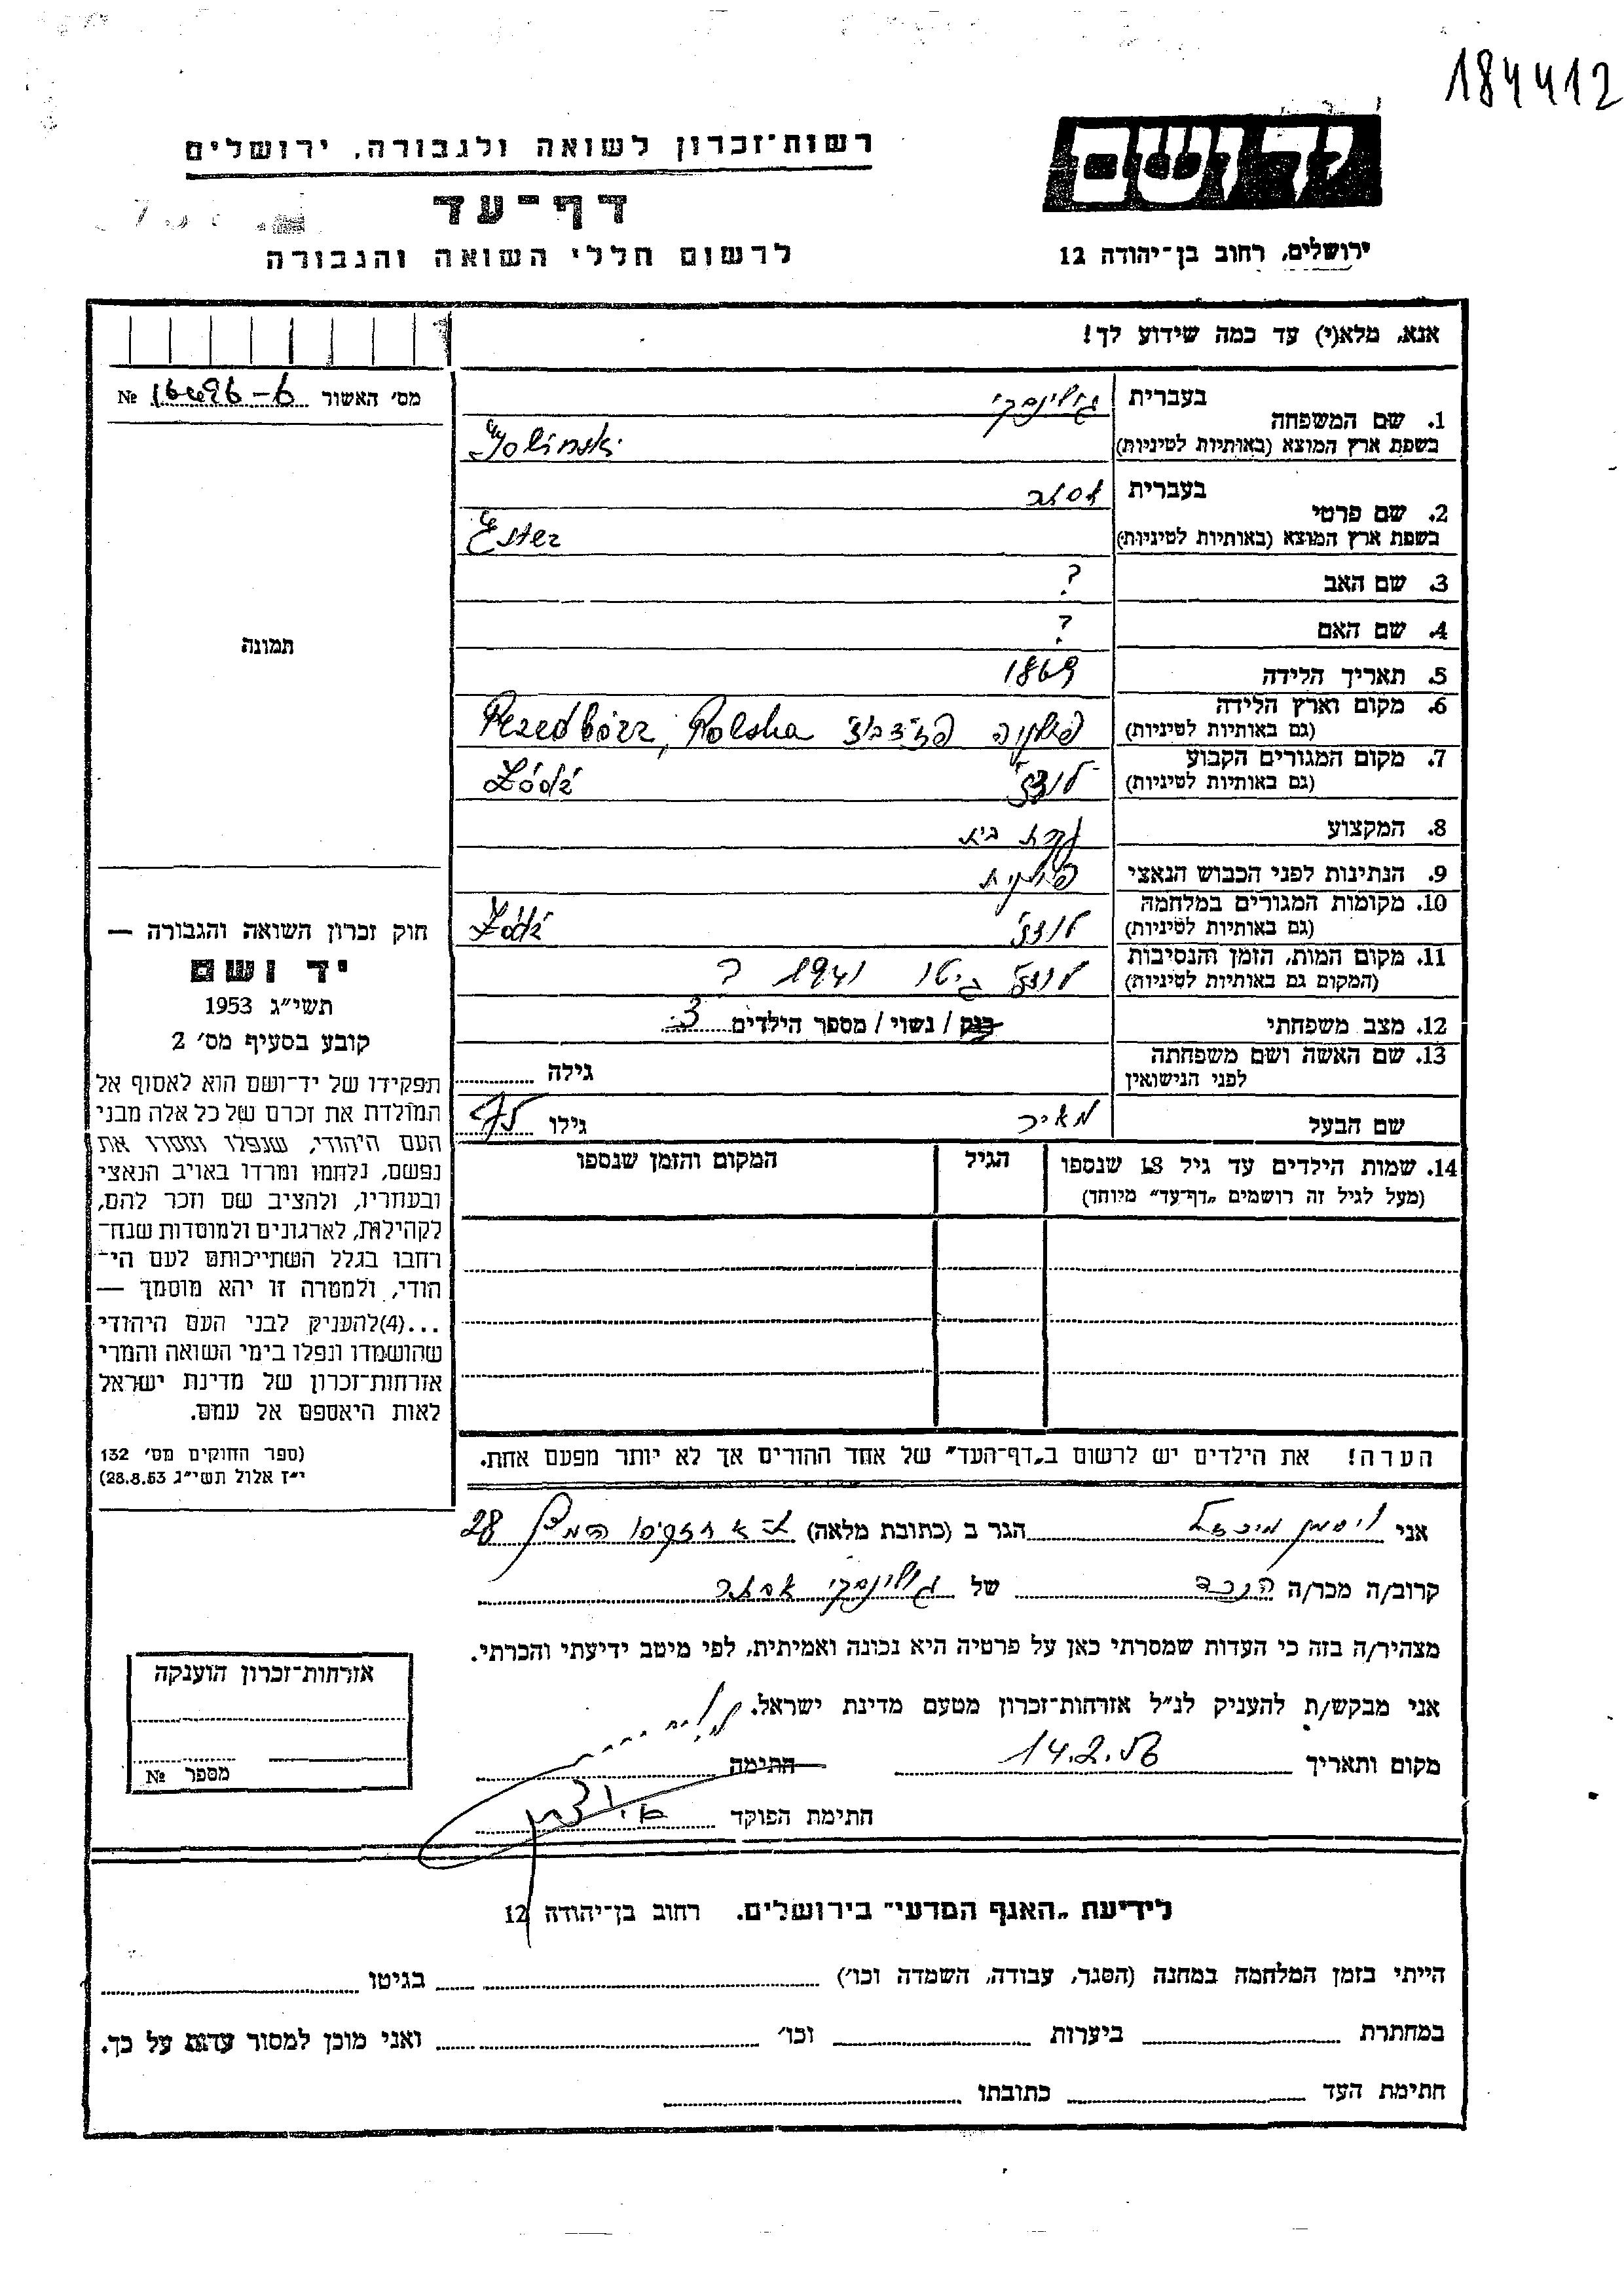 184412
רשות־זכרון לשואה ולגבורה, ירושלים
יד ושם
דף־עד
לרשום חללי השואה והגבורה
ירושלים, רחוב בן־יהודה 12
אנא, מלא(י) עד כמה שידוע לך!
מס׳ האשור № 16496-6
1. שם המשפחה
בעברית גולינסקי
בשפת ארץ המוצא (באותיות לטיניות) Golinski
2. שם פרטי
בעברית אסתר
בשפת ארץ המוצא (באותיות לטיניות) Ester
3. שם האב ?
4. שם האם ?
5. תאריך הלידה 1869
6. מקום וארץ הלידה
(גם באותיות לטיניות) Polska
7. מקום המגורים הקבוע
(גם באותיות לטיניות) לודז׳ Łódź
8. המקצוע עקרת בית
9. הנתינות לפני הכבוש הנאצי פולנית
10. מקומות המגורים במלחמה
(גם באותיות לטיניות) לודז׳ Łódź
11. מקום המות, הזמן והנסיבות
(המקום גם באותיות לטיניות) לודז׳ גיטו 1941 ?
12. מצב משפחתי רווק / נשוי / מספר הילדים 3
13. שם האשה ושם משפחתה
לפני הנישואין
גילה
שם הבעל מאיר גילו 75
14. שמות הילדים עד גיל 18 שנספו
(מעל לגיל זה רושמים „דף־עד״ מיוחד)
הגיל
המקום והזמן שנספו
הערה! את הילדים יש לרשום ב„דף־העד״ של אחד ההורים אך לא יותר מפעם אחת.
תמונה
חוק זכרון השואה והגבורה —
יד ושם
תשי״ג 1953
קובע בסעיף מס׳ 2
תפקידו של יד־ושם הוא לאסוף אל
המולדת את זכרם של כל אלה מבני
העם היהודי, שנפלו ומסרו את
נפשם, נלחמו ומרדו באויב הנאצי
ובעוזריו, ולהציב שם וזכר להם,
לקהילות, לארגונים ולמוסדות שנח־
רחבו בגלל השתייכותם לעם הי־
הודי, ולמטרה זו יהא מוסמך —
...(4) להעניק לבני העם היהודי
שהושמדו ונפלו בימי השואה והמרי
אזרחות־זכרון של מדינת ישראל
לאות היאספם אל עמם.
(ספר החוקים מס׳ 132
י״ז אלול תשי״ג 28.8.53)
אני הגר ב (כתובת מלאה) ת־א 28
קרוב/ה מכר/ה הנכד של גולינסקי אסתר
מצהיר/ה בזה כי העדות שמסרתי כאן על פרטיה היא נכונה ואמיתית, לפי מיטב ידיעתי והכרתי.
אני מבקש/ת להעניק לנ״ל אזרחות־זכרון מטעם מדינת ישראל.
מקום ותאריך 14.2.56 חתימה
חתימת הפוקד
אזרחות־זכרון הוענקה
מספר №
לידיעת „האגף המדעי״ בירושלים. רחוב בן־יהודה 12
הייתי בזמן המלחמה במחנה (הסגר, עבודה, השמדה וכו׳) בגיטו
במחתרת ביערות וכו׳ ואני מוכן למסור עדות על כך.
חתימת העד כתובתו